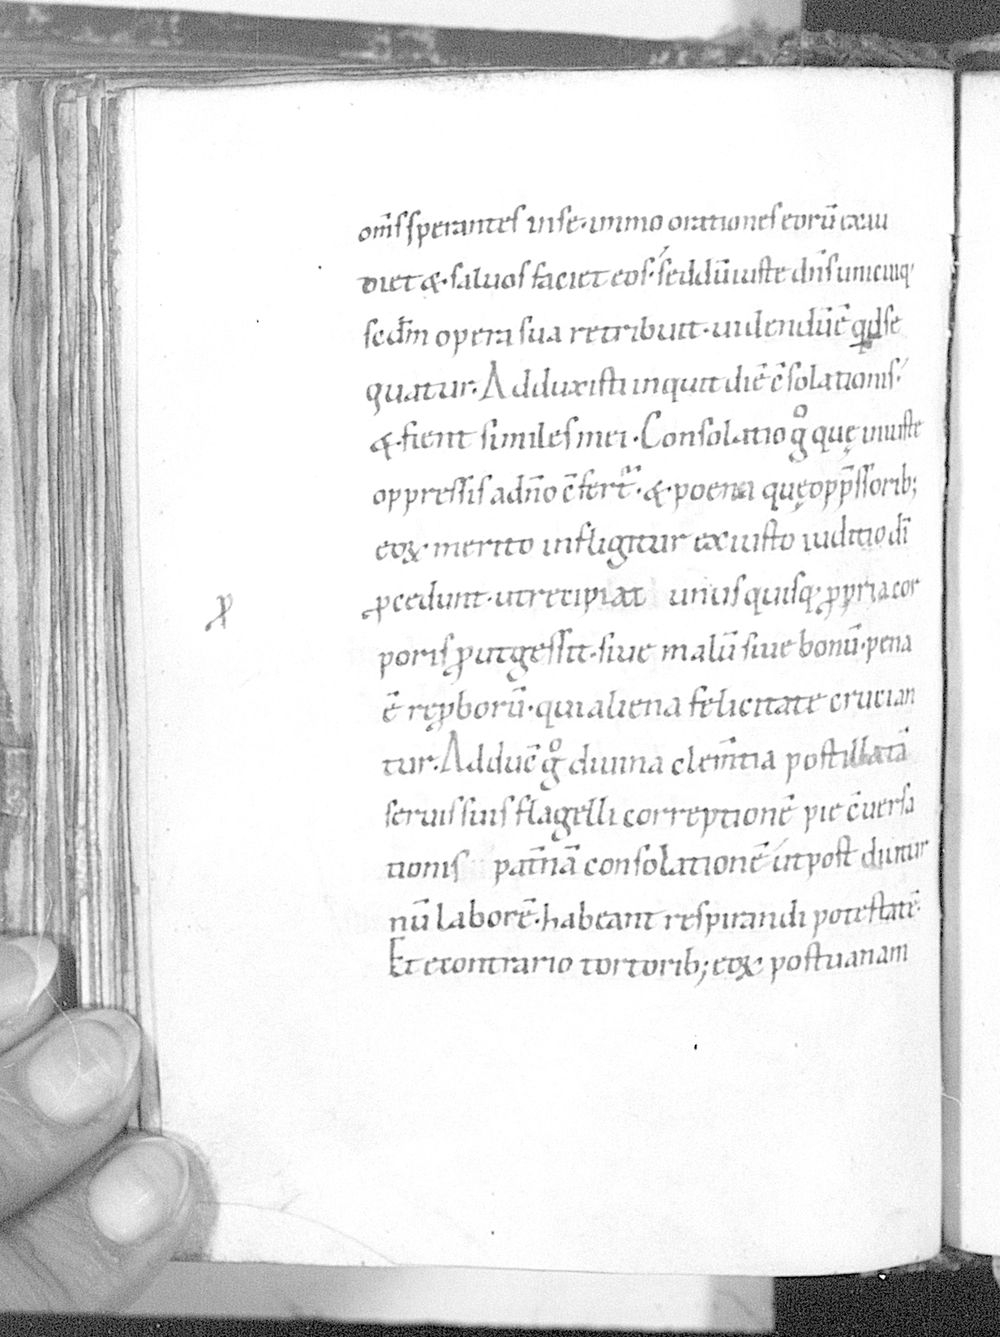 om̄s sperantes in se · immo orationes eorū exau
diet & · saluos faciet eos · sed dū iuste dn̄s unicuiq;
scdm̄ opera sua retribuit · uidendū ē qd se
quatur · Adduxisti inquit diē c̄solationis ·
& · fient similes mei · Consolatio g̊ quę iniuste
oppressis ad n̄o c̄fert̃ · & · poena quę opp̄ssorib;
eoꝝ merito infligitur ex iusto iuditio dī
ꝓcedunt · ut recipiat unusquisq; ꝓpria cor
poris ꝓut gessit · siue malū siue bonū · pena
ē reꝓborū · qui aliena felicitate crucian
tur · Adduc̄ g̊ diuina clem̄tia post illatā
seruis suis flagelli correptionē pie c̄uersa
tionis pat̄nā consolationē ut post diutur
nū laborē · habeant respirandi potestatē ·
Et econtrario tortorib; eoꝝ post uanam